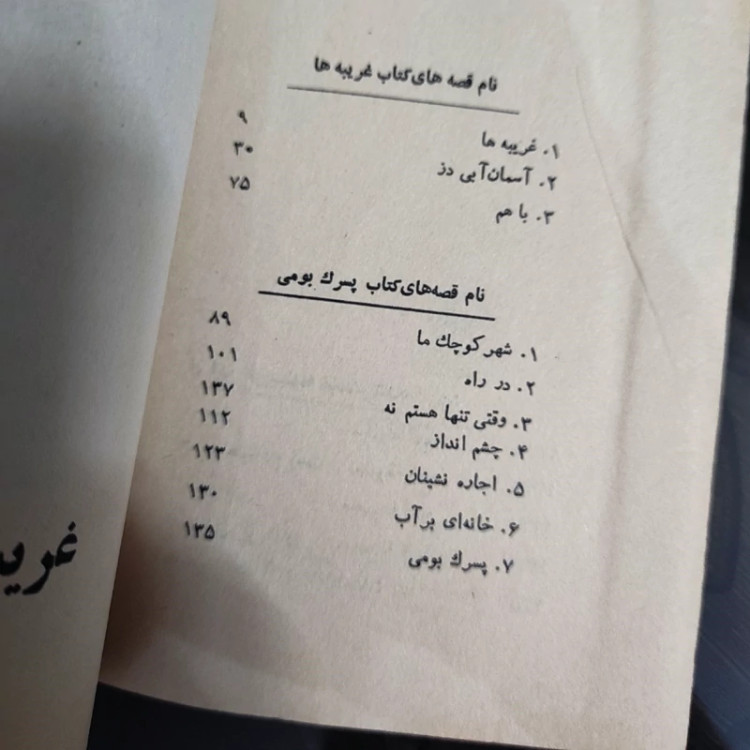 نام قصه های کتاب غریبه ها
۱. غریبه ها ۹
۲. آسمان آبی دز ۳۰
۳. با هم ۷۵
نام قصه‌های کتاب پسرك بومی
۱. شهر کوچك ما ۸۹
۲. در راه ۱۰۱
۳. وقتی تنها هستم نه ۱۳۷
۴. چشم انداز ۱۱۲
۵. اجاره نشینان ۱۲۳
۶. خانه‌ای بر آب ۱۳۰
۷. پسرك بومی ۱۳۵